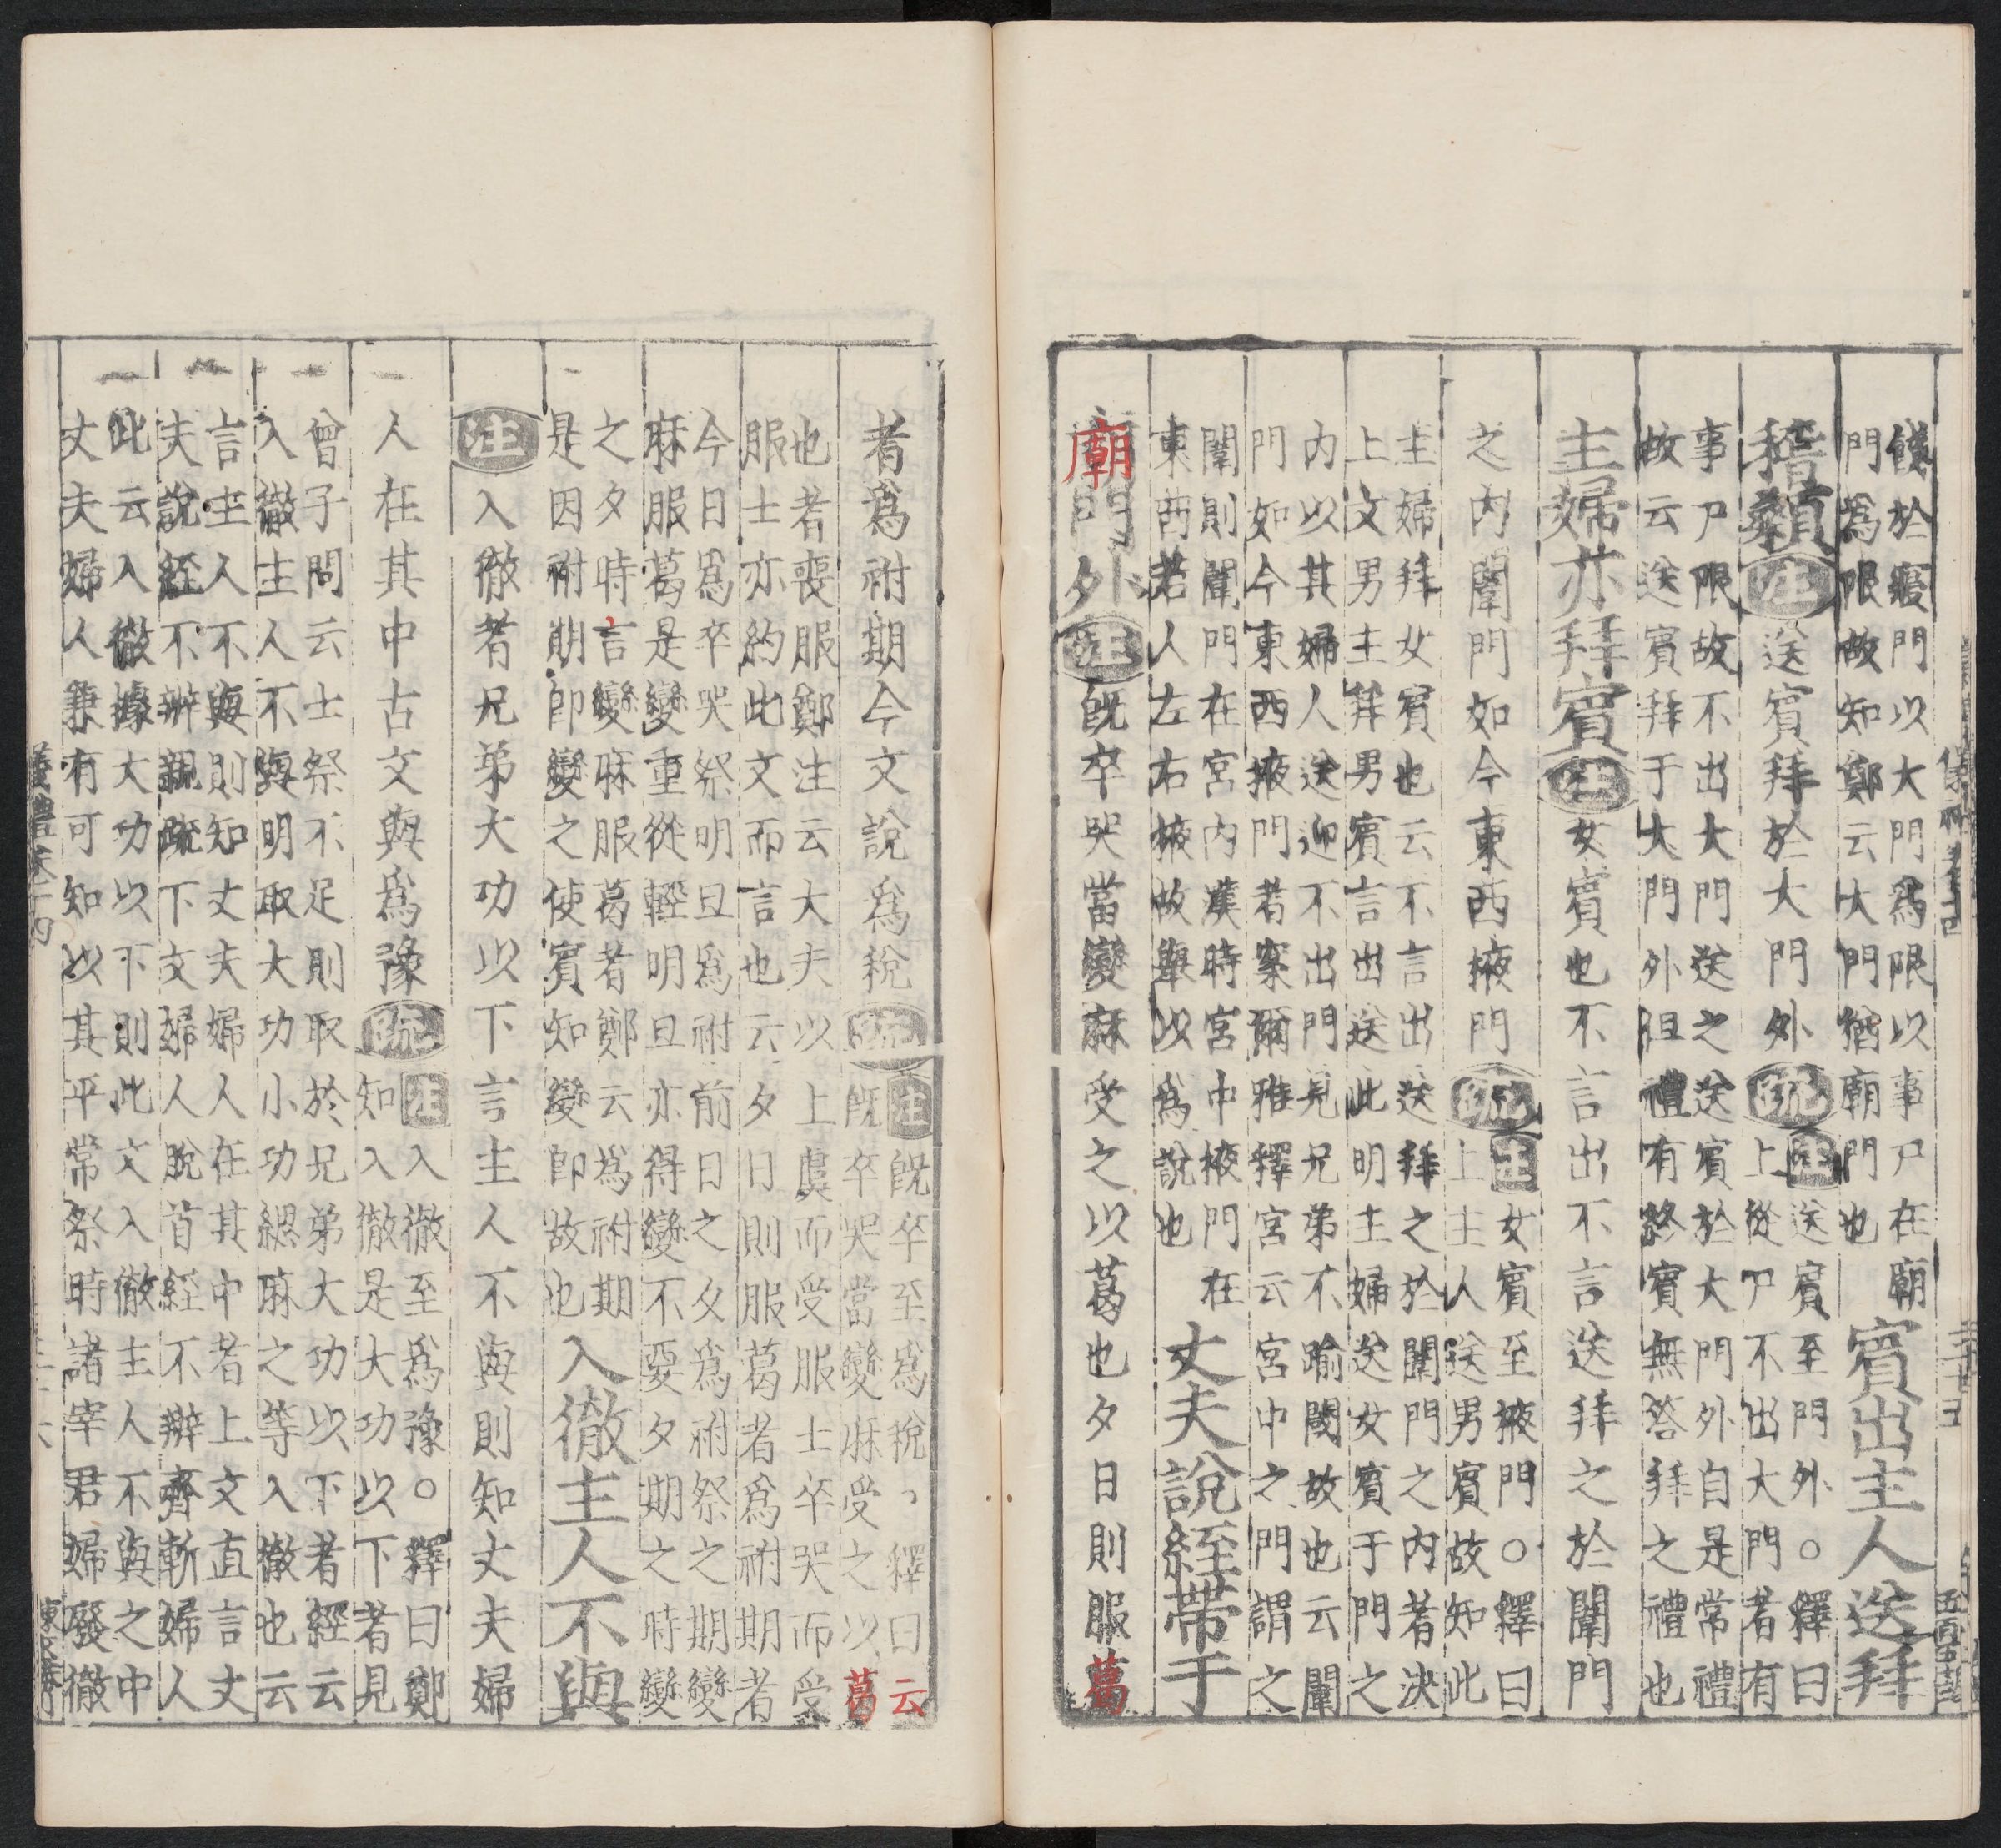 餞於寢門以大門爲限以事尸在廟
門爲限故知鄭云大門猶廟門也
賓出主人送拜
稽顙
注
送賓拜於大門外
疏
注送賓至門外○釋曰
上從尸不出大門者有
事尸限故不出大門送之送賓於大門外自是常禮
故云送賓拜于大門外但禮有終賓無答拜之禮也
主婦亦拜賓
注
女賓也不言出不言送拜之於闈門
之内闈門如今東西掖門
疏
注女賓至掖門○釋曰
上主人送男賓故知此
主婦拜女賓也云不言出送拜之於闈門之内者決
上文男主拜男賓言出送此明主婦送女賓于門之
内以其婦人送迎不出門見兄弟不踰閾故也云闈
門如今東西掖門者案爾雅釋宮云宮中之門謂之
闈則闈門在宮内漢時宮中掖門在
東西若人左右掖故舉以爲説也
丈夫説絰帶于
廟門外
注
旣卒哭當變麻受之以葛也夕日則服葛
者爲祔期今文説爲税
疏
注旣卒至爲税、釋曰云
旣卒哭當變麻受之以葛
也者喪服鄭注云大夫以上虞而受服士卒哭而受
服士亦約此文而言也云夕日則服葛者爲祔期者
今日爲卒哭祭明旦爲祔前日之夕爲祔祭之期變
麻服葛是變重從輕明旦亦得變不要夕期之時變
之夕時言變麻服葛者鄭云爲祔期
是因祔期即變之使賓知變即故也
入徹主人不與
注
入徹者兄弟大功以下言主人不與則知丈夫婦
人在其中古文與爲豫
疏
注入徹至爲豫○釋曰鄭
知入徹是大功以下者見
曾子問云士祭不足則取於兄弟大功以下者經云
入徹主人不與明取大功小功緦麻之等入徹也云
言主人不與則知丈夫婦人在其中者上文直言丈
夫説絰不辨親疏下文婦人脱首絰不辨齊斬婦人
此云入徹據大功以下則此文入徹主人不與之中
丈夫婦人兼有可知以其平常祭時諸宰君婦廢徹